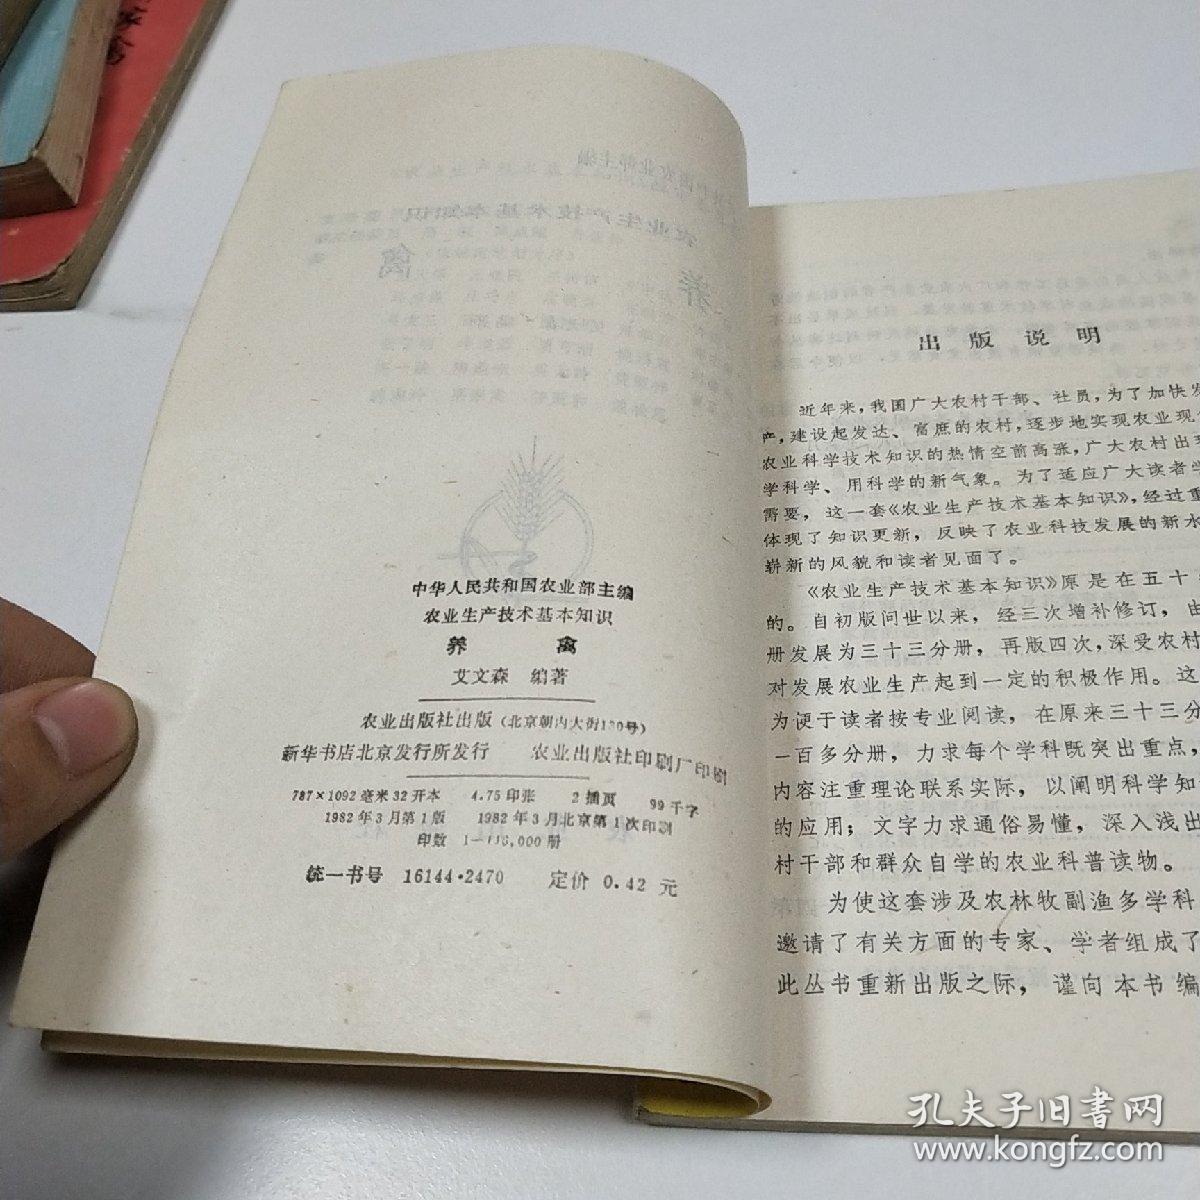 中华人民共和国农业部主编
农业生产技术基本知识
养 禽
艾文森 编著
农业出版社出版（北京朝内大街130号）
新华书店北京发行所发行 农业出版社印刷厂印刷
787×1092毫米32开本 4.75印张 2插页 99千字
1982年3月第1版 1982年3月北京第1次印刷
印数 1—118,000册
统一书号 16144·2470 定价 0.42 元
出 版 说 明
近年来，我国广大农村干部、社员，为了加快发
产，建设起发达、富庶的农村，逐步地实现农业现
农业科学技术知识的热情空前高涨，广大农村出
学科学、用科学的新气象。为了适应广大读者学
需要，这一套《农业生产技术基本知识》，经过重
体现了知识更新，反映了农业科技发展的新水
崭新的风貌和读者见面了。
《农业生产技术基本知识》原是在五十
的。自初版问世以来，经三次增补修订，由
册发展为三十三分册，再版四次，深受农村
对发展农业生产起到一定的积极作用。这
为便于读者按专业阅读，在原来三十三分
一百多分册，力求每个学科既突出重点，
内容注重理论联系实际，以阐明科学知
的应用；文字力求通俗易懂，深入浅出
村干部和群众自学的农业科普读物。
为使这套涉及农林牧副渔多学科
邀请了有关方面的专家、学者组成了
此丛书重新出版之际，谨向本书编
孔夫子旧书网
www.kongfz.com